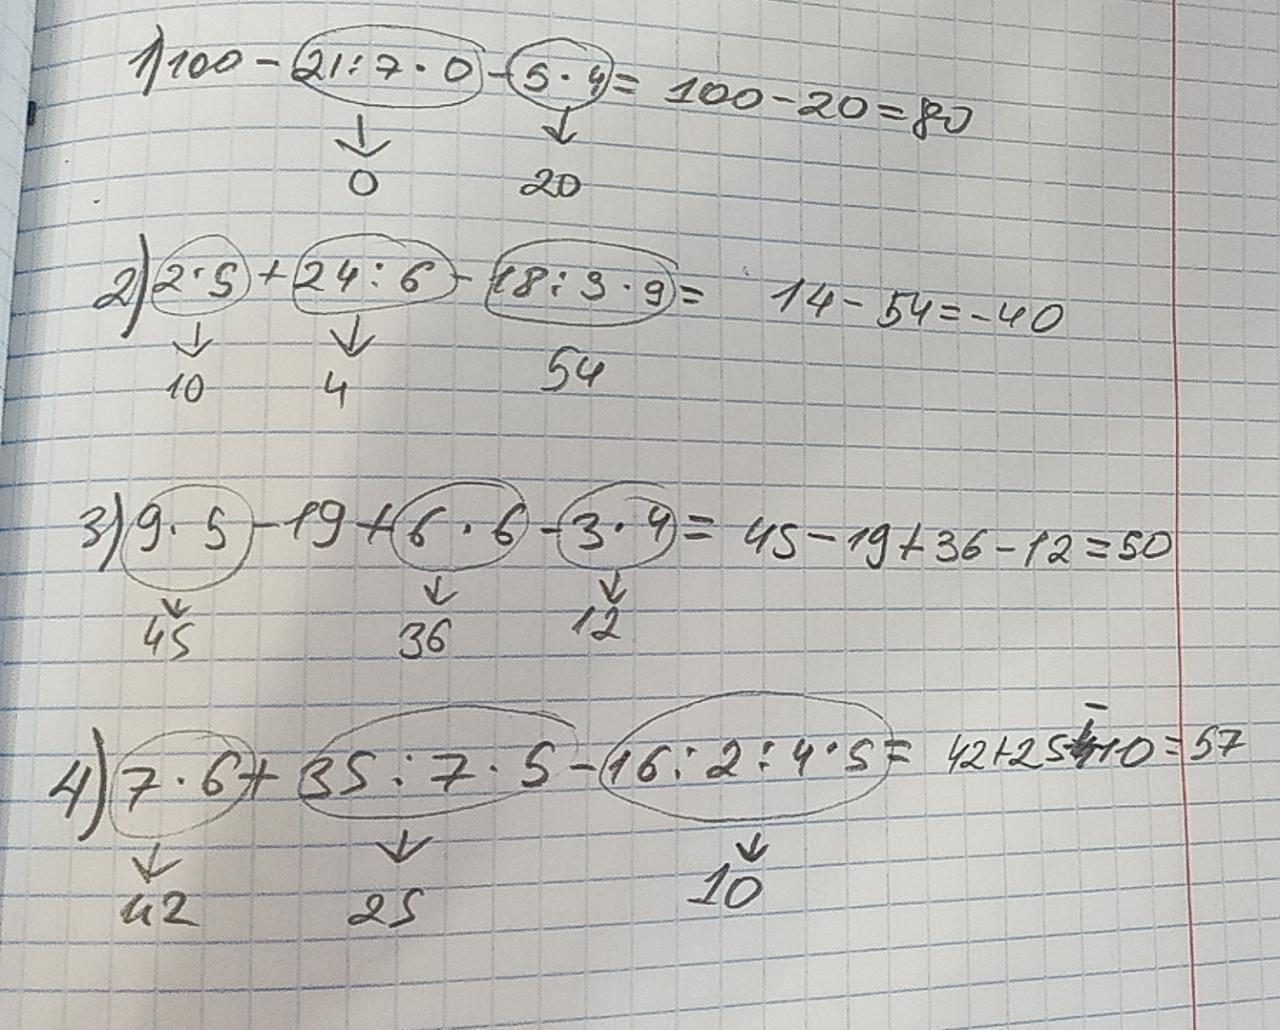 1) 100 - 21 : 7 · 0 - 5 · 4 = 100 - 20 = 80
0 20
2) 2 · 5 + 24 : 6 - 18 : 3 · 9 = 14 - 54 = -40
10 4 54
3) 9 · 5 - 19 + 6 · 6 - 3 · 4 = 45 - 19 + 36 - 12 = 50
45 36 12
4) 7 · 6 + 35 : 7 · 5 - 16 : 2 : 4 · 5 = 42 + 25 - 10 = 57
42 25 10